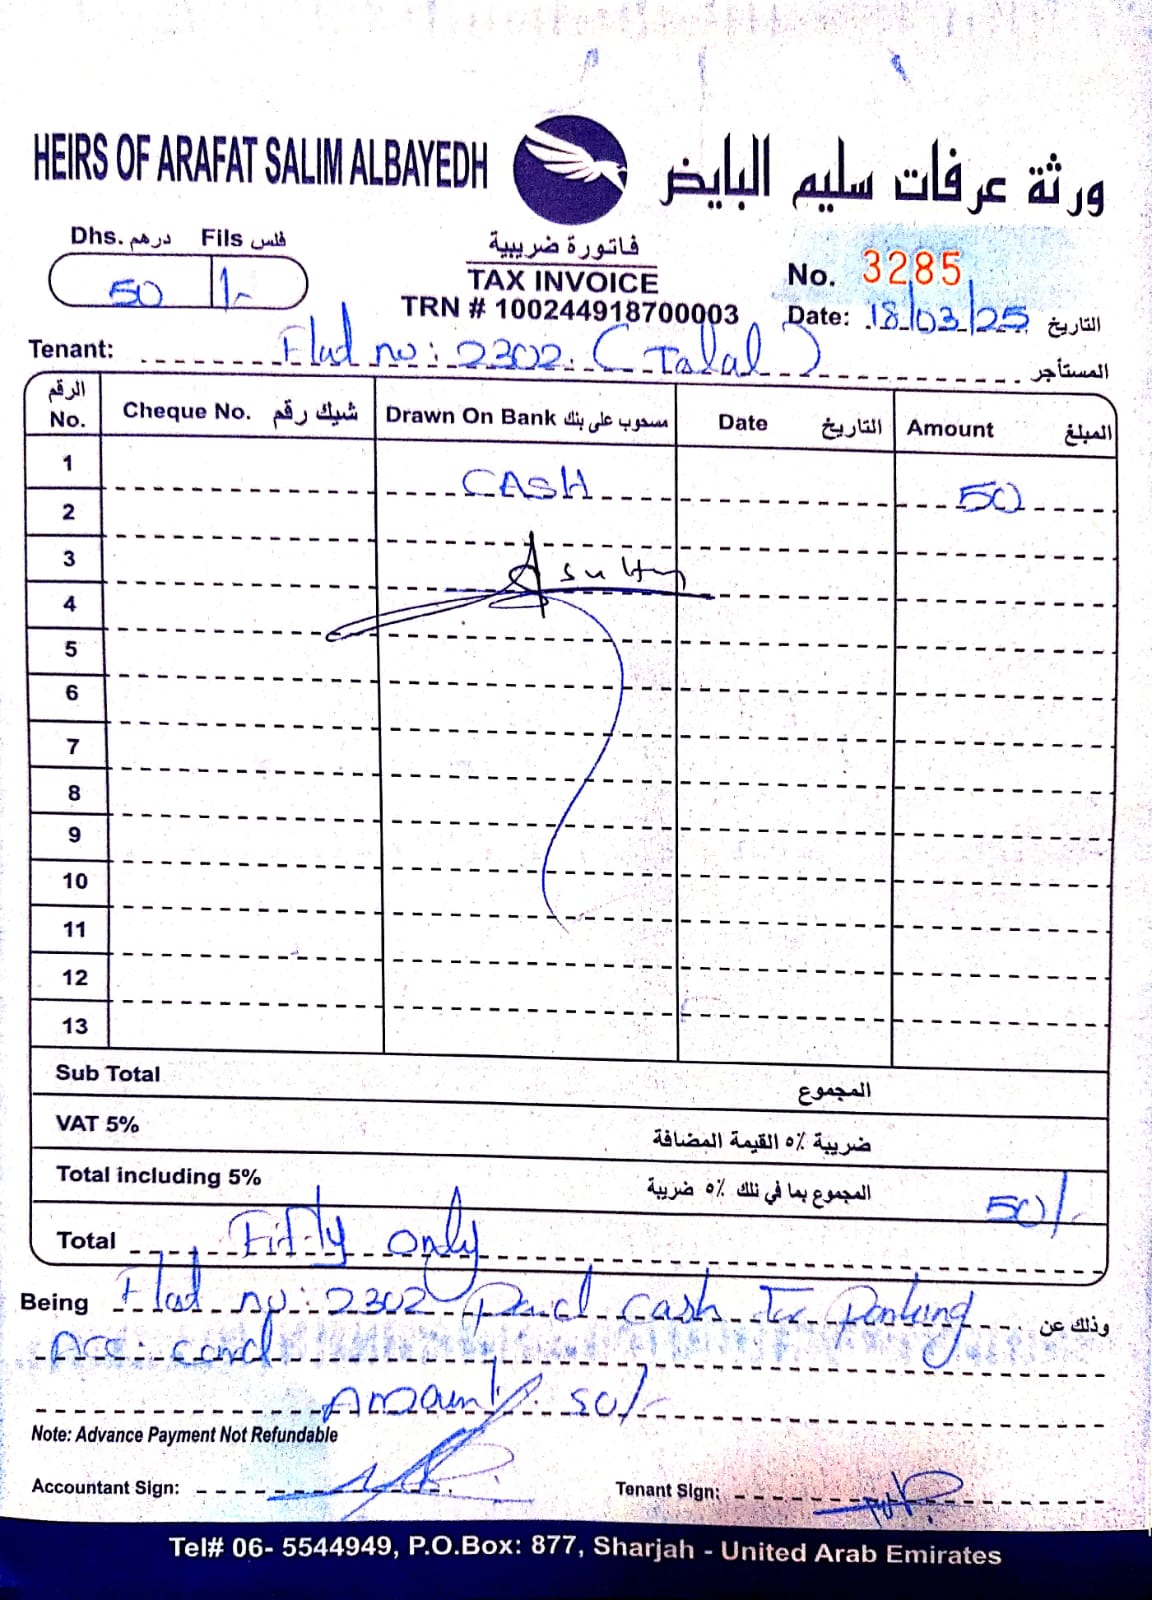 HEIRS OF ARAFAT SALIM ALBAYEDH ورثة عرفات سليم البايض
Dhs. درهم Fils فلس
50 /-
فاتورة ضريبية
TAX INVOICE
TRN # 100244918700003
No. 3285
Date: 18/03/25 التاريخ
Tenant: Flat no: 2302. (Talal) المستأجر
الرقم No. Cheque No. شيك رقم Drawn On Bank مسحوب على بنك Date التاريخ Amount المبلغ
1 CASH 50
2
3
4
5
6
7
8
9
10
11
12
13
Sub Total المجموع
VAT 5% ضريبة ٥٪ القيمة المضافة
Total including 5% المجموع بما في ذلك ٥٪ ضريبة 50/-
Total Fifty only
Being Flat no: 2302 Paid cash For Parking وذلك عن
Acc: card
Amount: 50/-
Note: Advance Payment Not Refundable
Accountant Sign: Tenant Sign:
Tel# 06- 5544949, P.O.Box: 877, Sharjah - United Arab Emirates